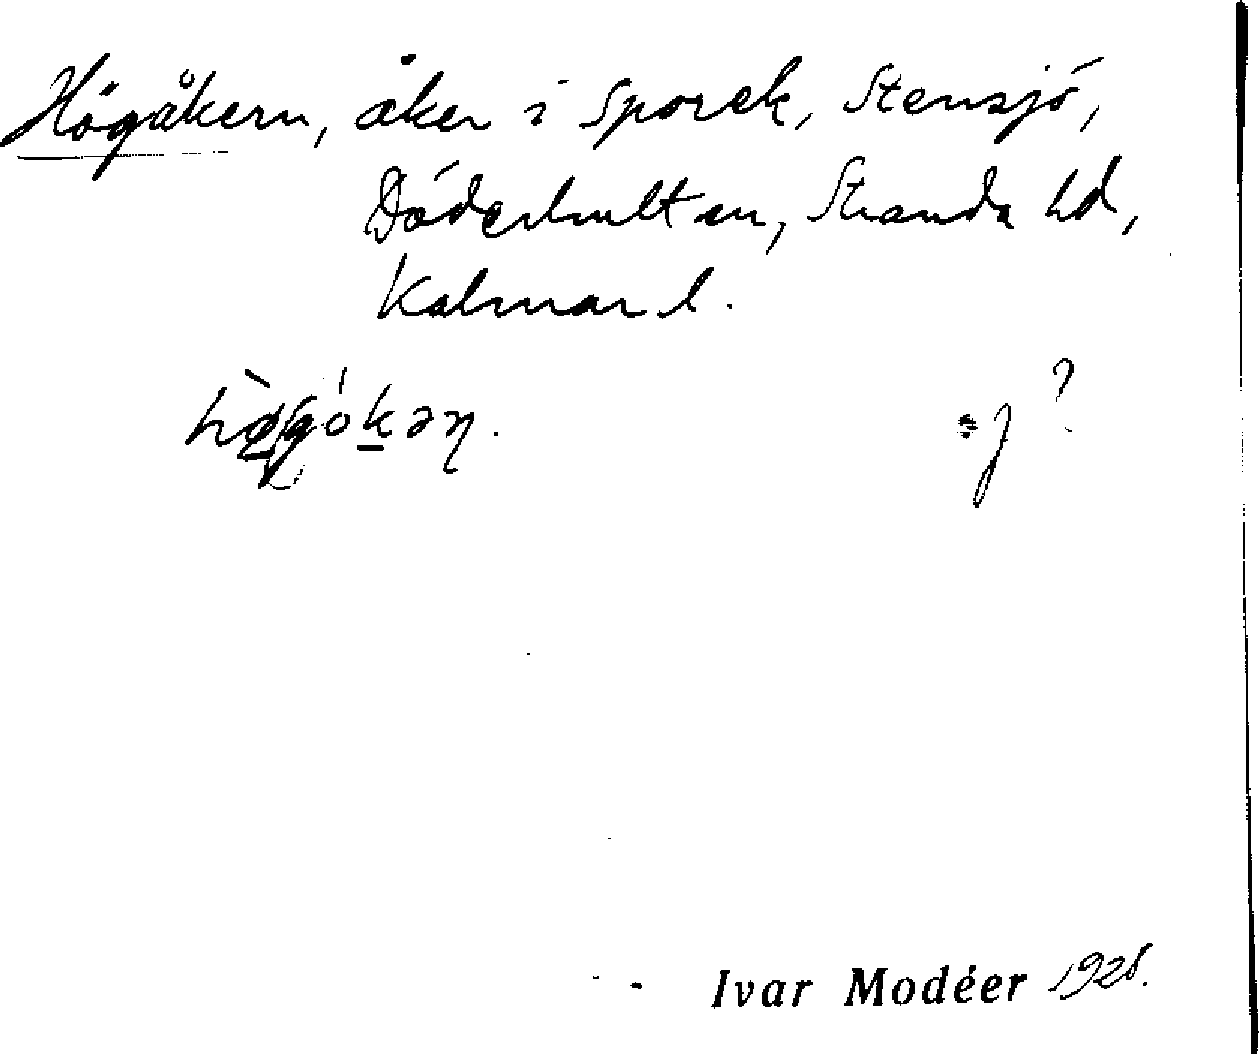 Högåkern, åker i Sporek, Stensjö,
Döderhulten, Stranda hd,
Kalmar l.
?
Ivar Modéer 1928.